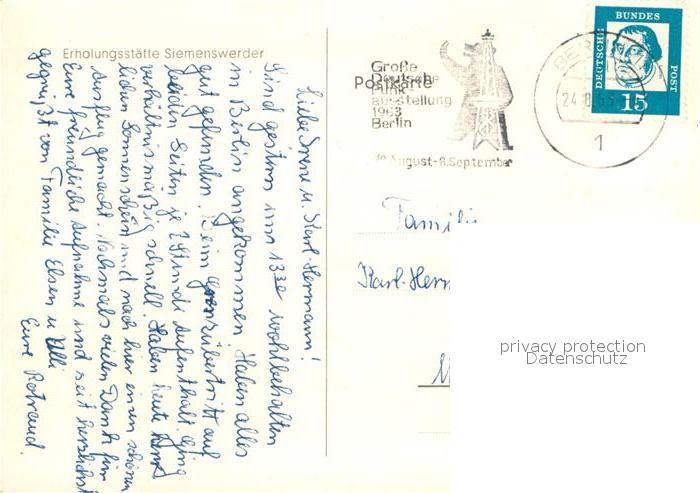 Erholungsstätte Siemenswerder
Liebe Irene u. Karl-Hermann!
Sind gestern um 13³⁰ wohlbehalten
in Berlin angekommen. Haben alles
gut gefunden. Beim Grenzübertritt auf
beiden Seiten je 2 Stunde Aufenthalt. Ging
verhältnismäßig schnell. Haben heute
lichen Sonnenschein und nach hier einen schönen
Ausflug gemacht. Nochmals vielen Dank für
Eure freundliche Aufnahme und seit herzlichst
gegrüßt von Familie Elsen u. Ulli
Eure Rotraud.
Postkarte
Große
Deutsche
Funk
ausstellung
1963
Berlin
30. August - 8. September
BERLIN
24.8.63
1
DEUTSCHE
BUNDES
POST
15
Famili
Karl-Herm
privacy protection
Datenschutz